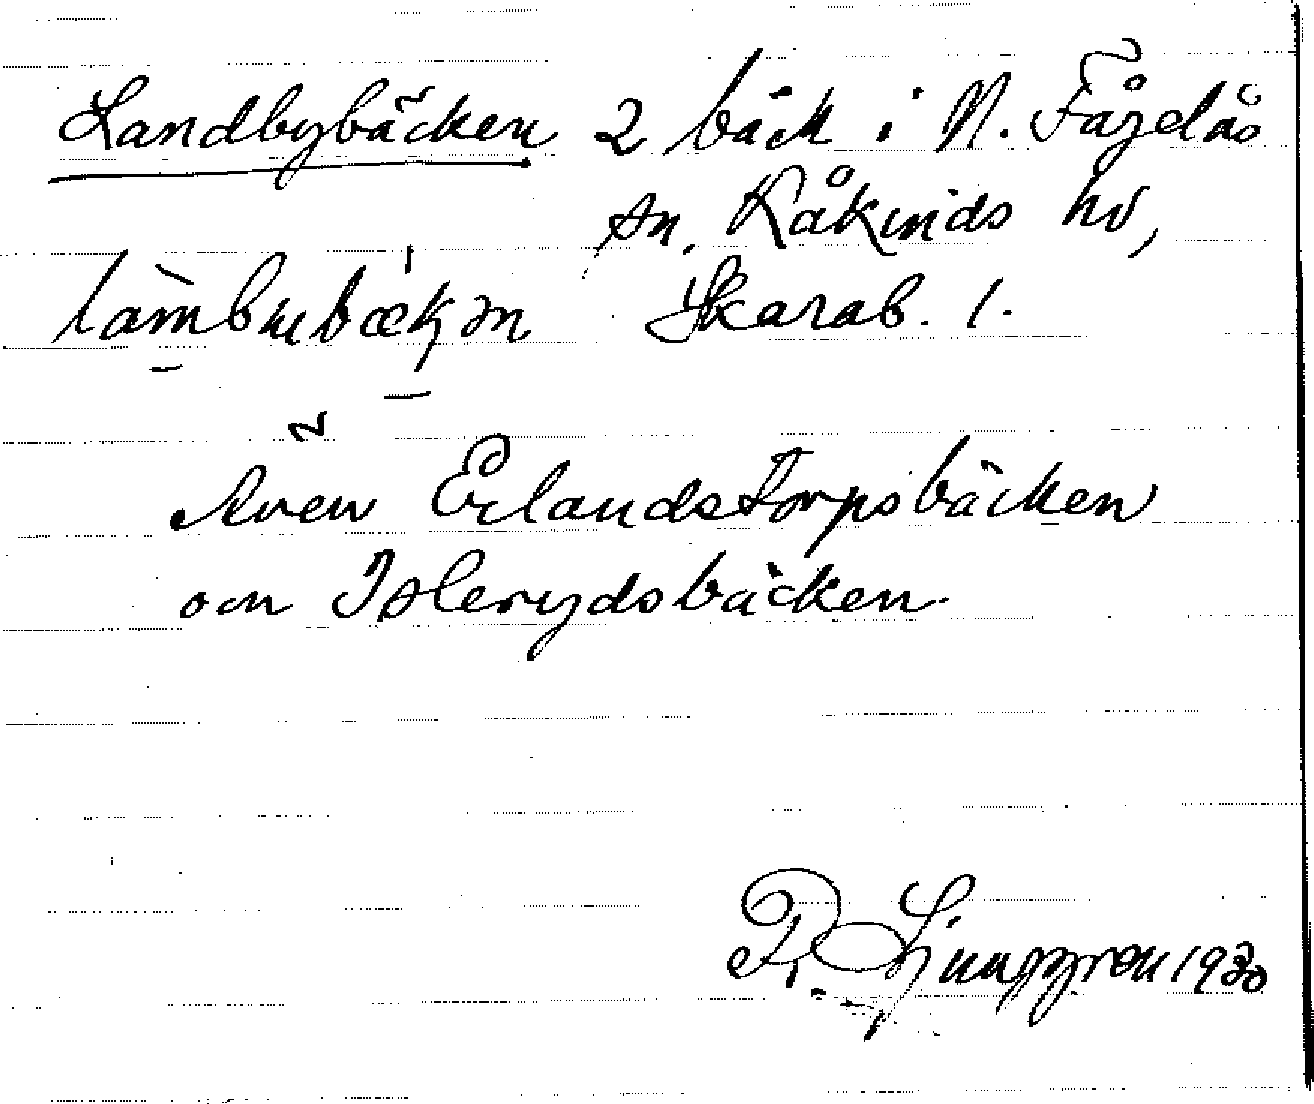 Landbybäcken 2 bäck i N. Fågelås
sn, Kåkinds hd,
lambubækən Skarab. l.
Även Erlandstorpsbäcken
om Islerydsbäcken.
R. Ljunggren 1930